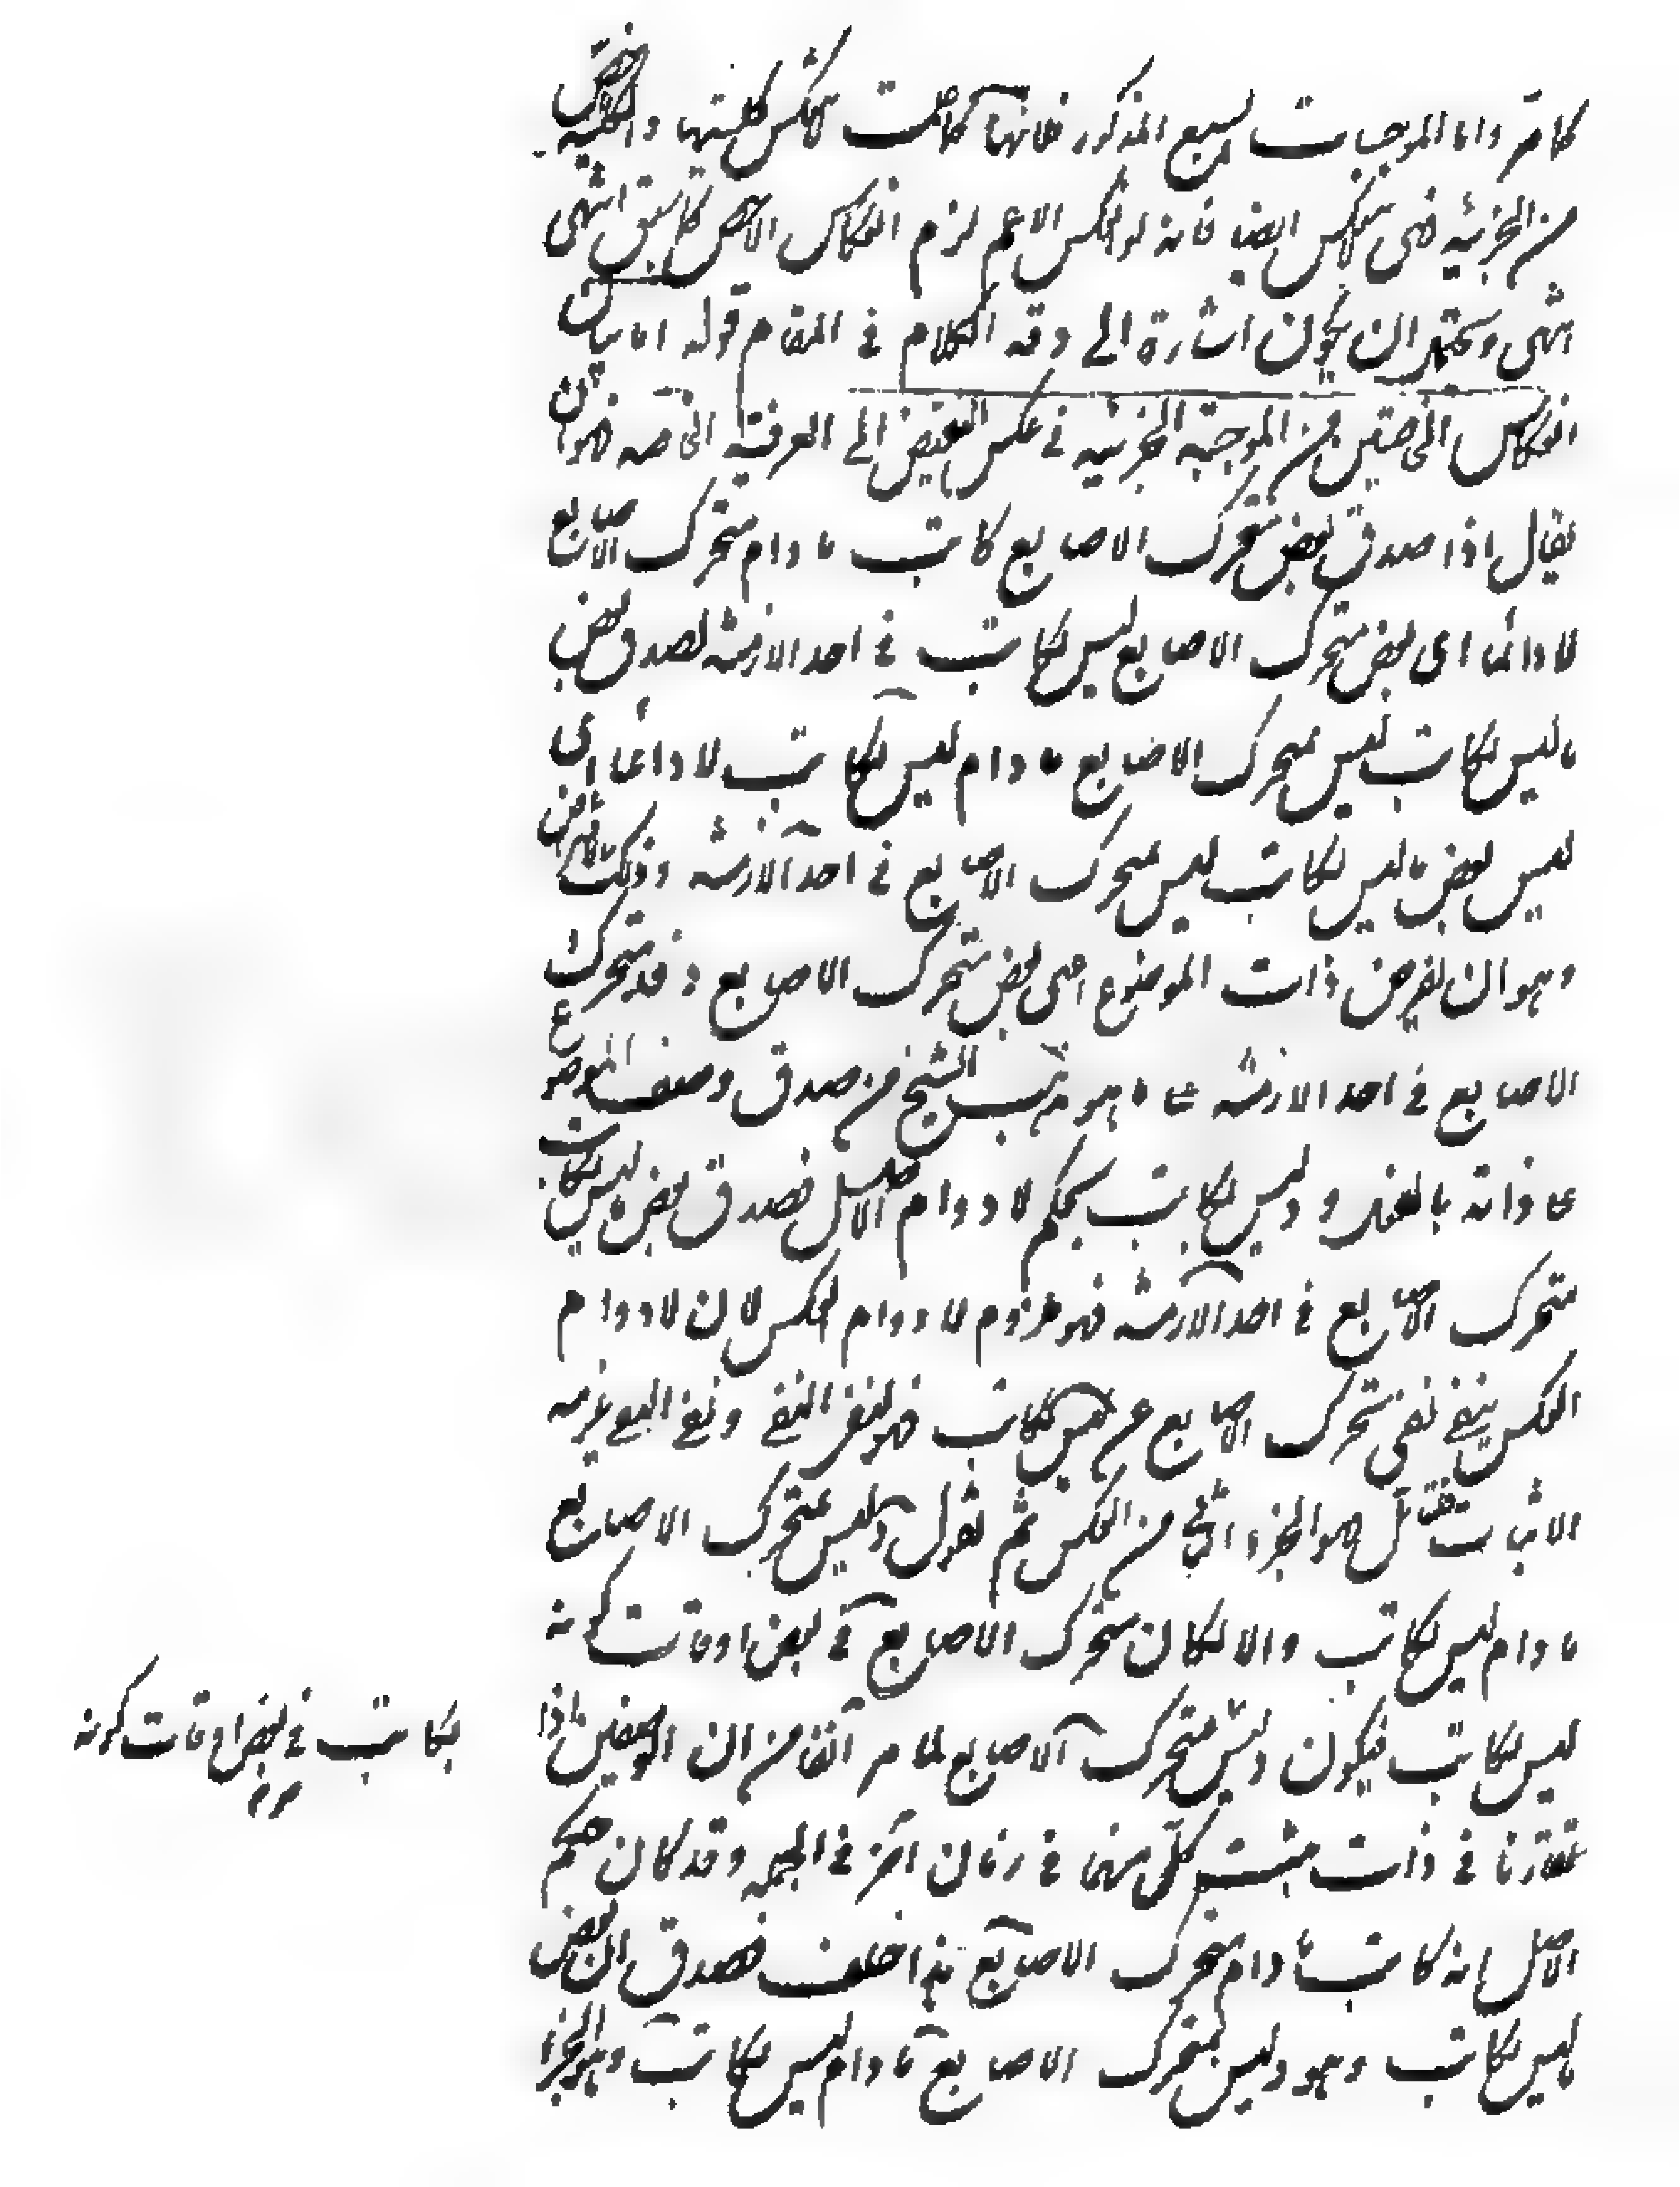 كما مر واما الموجبات السبع المذكور فانها كانت لا تنعكس كليتها والكلية اخص
من الجزئية فهى لا تنعكس ايضا فانه لو انعكس الاعم لزم انعكاس الاخص كما سبق انتهى
انتهى ويحتمل ان يكون اشارة الى دقة الكلام فى المقام قوله اما بيان
انعكاس الخاصتين من الموجبة الجزئية فى عكس النقيض الى العرفية الخاصة فهو ان
يقال اذا صدق بعض متحرك الاصابع كاتب ما دام متحرك الاصابع
لا دائما اى بعض متحرك الاصابع ليس بكاتب فى احد الازمنة لصدق بعض
ما ليس بكاتب ليس بمتحرك الاصابع ما دام ليس بكاتب لا دائما اى
ليس بعض ما ليس بكاتب ليس بمتحرك الاصابع فى احد الازمنة وذلك
وهو ان يفرض ذات الموضوع اعنى بعض متحرك الاصابع د فد متحرك
الاصابع فى احد الازمنة على ما هو مذهب الشيخ من صدق وصف الموضوع
على ذاته بالفعل و د ليس بكاتب بحكم لا دوام الاصل فصدق بعض ما ليس بكاتب
متحرك الاصابع فى احد الازمنة فهو ملزوم لا دوام العكس لان لا دوام
العكس ينفى نفى متحرك الاصابع عن ليس بكاتب فهو نفى النفى ونفى النفى يلزمه
الاثبات فتأمل هو الجزء الثانى من العكس ثم نقول د ليس بمتحرك الاصابع
ما دام ليس بكاتب والا لكان متحرك الاصابع فى بعض اوقات كونه
ليس بكاتب فيكون د ليس بمتحرك الاصابع لما مر آنفا من ان الوصفين اذا
تقارنا فى ذات يثبت كل منهما فى زمان آخر فى الجملة وقد كان حكم
الاصل انه كاتب ما دام متحرك الاصابع هذا خلف فصدق ان بعض
ليس بكاتب وهو د ليس بمتحرك الاصابع ما دام ليس بكاتب وهو الجزء
بكاتب فى بعض اوقات كونه